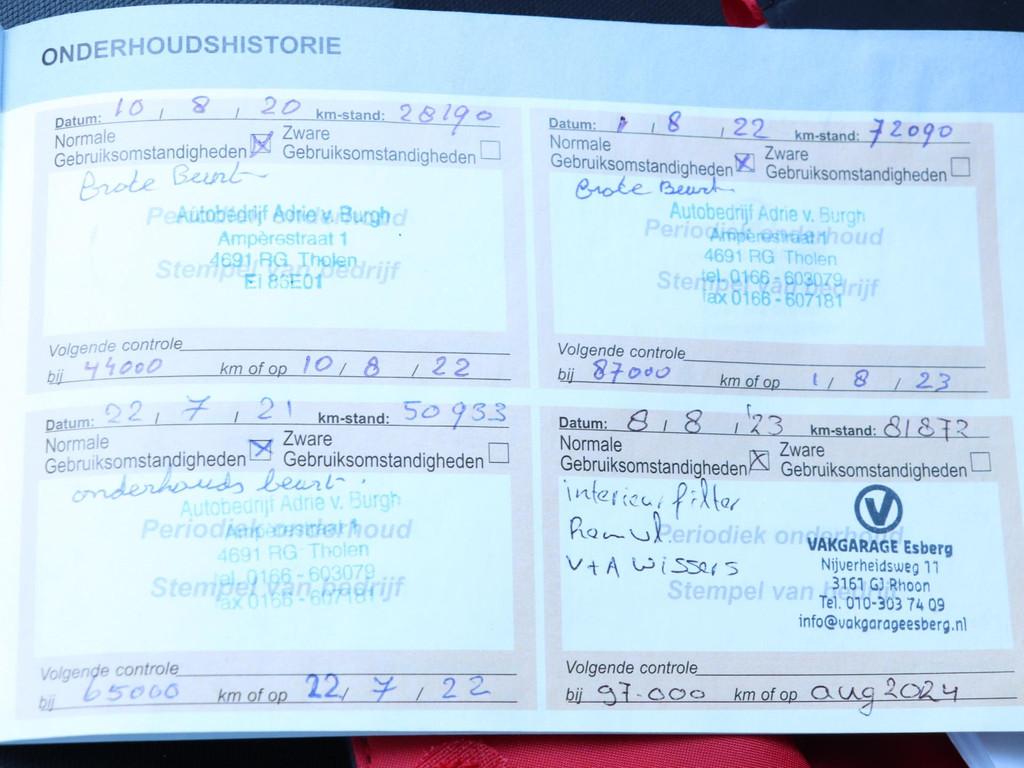 ONDERHOUDSHISTORIE
Datum: 10 / 8 / 20 km-stand: 28190
Normale Gebruiksomstandigheden Zware Gebruiksomstandigheden
Grote Beurt
Periodiek onderhoud
Autobedrijf Adrie v. Burgh
Ampèrestraat 1
4691 RG Tholen
Stempel van bedrijf
EI 85E01
Volgende controle
bij 44000 km of op 10 / 8 / 22
Datum: 1 / 8 / 22 km-stand: 72090
Normale Gebruiksomstandigheden Zware Gebruiksomstandigheden
Grote Beurt
Autobedrijf Adrie v. Burgh
Periodiek onderhoud
Ampèrestraat 1
4691 RG Tholen
tel. 0166 - 603079
Stempel van bedrijf
fax 0166 - 607181
Volgende controle
bij 87000 km of op 1 / 8 / 23
Datum: 22 / 7 / 21 km-stand: 50933
Normale Gebruiksomstandigheden Zware Gebruiksomstandigheden
onderhouds beurt.
Autobedrijf Adrie v. Burgh
Periodiek onderhoud
Ampèrestraat 1
4691 RG Tholen
tel. 0166 - 603079
Stempel van bedrijf
fax 0166 - 607181
Volgende controle
bij 65000 km of op 22 / 7 / 22
Datum: 8 / 8 / 23 km-stand: 81872
Normale Gebruiksomstandigheden Zware Gebruiksomstandigheden
interieurfilter
Remvl.
V+A wissers
Periodiek onderhoud
Stempel van bedrijf
VAKGARAGE Esberg
Nijverheidsweg 11
3161 GJ Rhoon
Tel. 010-303 74 09
info@vakgarageesberg.nl
Volgende controle
bij 97.000 km of op aug 2024